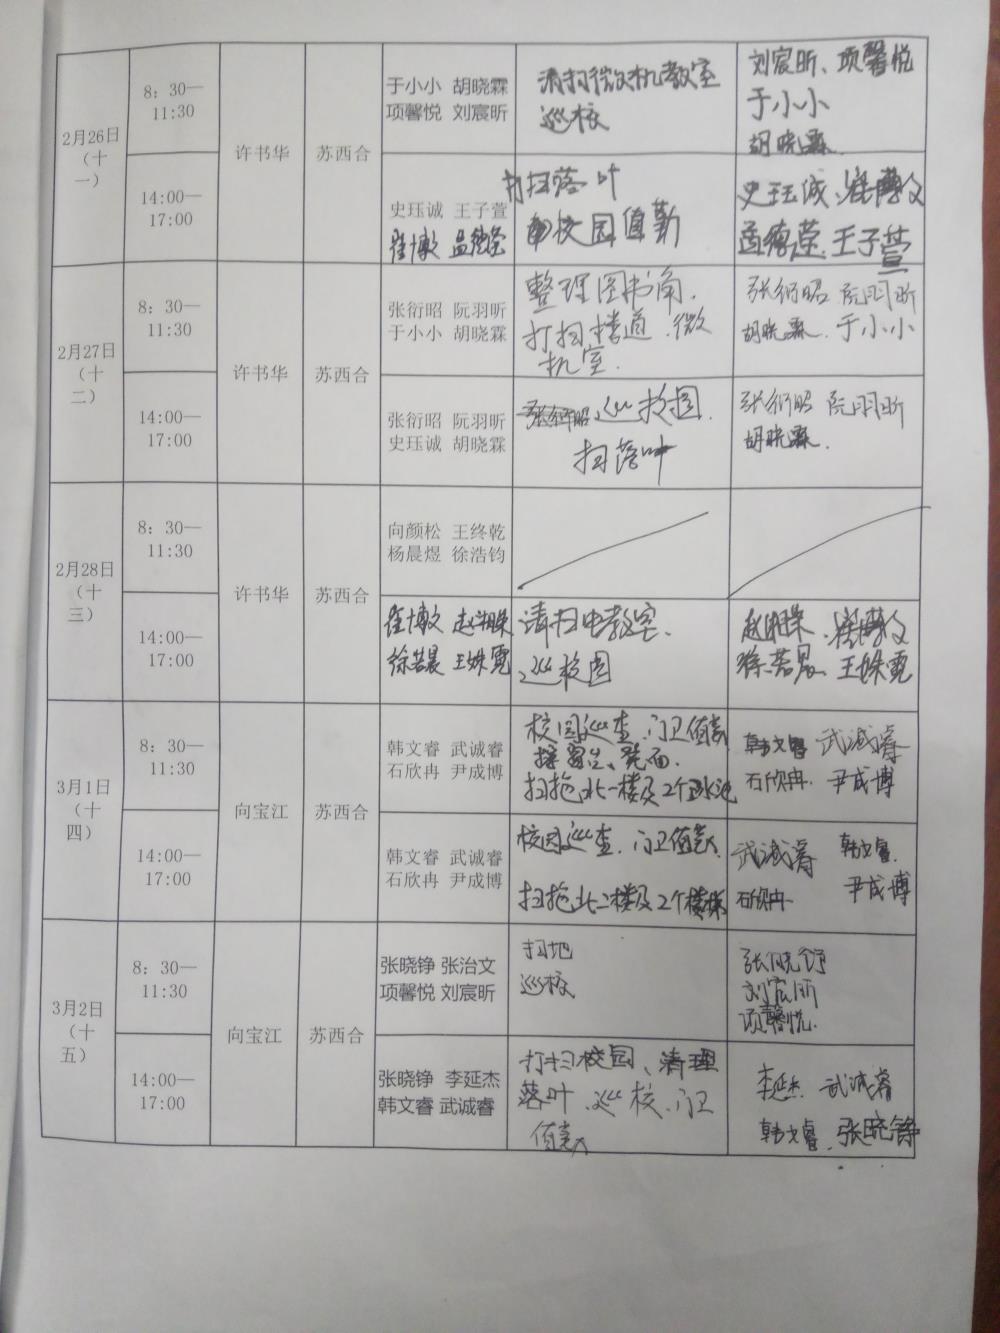 2月26日
（十
一）
8：30—
11:30
许书华
苏西合
于小小 胡晓霖
项馨悦 刘宸昕
清扫微机教室
巡校
刘宸昕、项馨悦
于小小
胡晓霖.
14:00—
17:00
史珏诚 王子萱
崔博文 孟德荣
打扫落叶
校园值勤
史珏诚、崔博文
孟德荣.王子萱
2月27日
（十
二）
8：30—
11:30
许书华
苏西合
张衍昭 阮羽昕
于小小 胡晓霖
整理图书角.
打扫楼道.微
机室.
张衍昭 阮羽昕
胡晓霖.于小小
14:00—
17:00
张衍昭 阮羽昕
史珏诚 胡晓霖
张衍昭 巡校园.
扫落叶
张衍昭 阮羽昕
胡晓霖.
2月28日
（十
三）
8：30—
11:30
许书华
苏西合
向颜松 王终乾
杨晨煜 徐浩钧
14:00—
17:00
崔博文 赵湘
徐若晨 王姝霓
清扫电教室.
巡校园
赵湘 .崔博文
徐若晨 王姝霓
3月1日
（十
四）
8：30—
11:30
向宝江
苏西合
韩文睿 武诚睿
石欣冉 尹成博
校园巡查.门卫值勤
扫拖北一楼及2个水池
韩文睿 武诚睿
石欣冉. 尹成博
14:00—
17:00
韩文睿 武诚睿
石欣冉 尹成博
校园巡查.门卫值勤
扫拖北二楼及2个楼梯
武诚睿 韩文睿.
石欣冉. 尹成博
3月2日
（十
五）
8：30—
11:30
向宝江
苏西合
张晓铮 张治文
项馨悦 刘宸昕
扫地
巡校
张晓铮
刘宸昕
项馨悦.
14:00—
17:00
张晓铮 李延杰
韩文睿 武诚睿
打扫校园、清理
落叶.巡校.门卫
值勤
李延杰 武诚睿
韩文睿.张晓铮